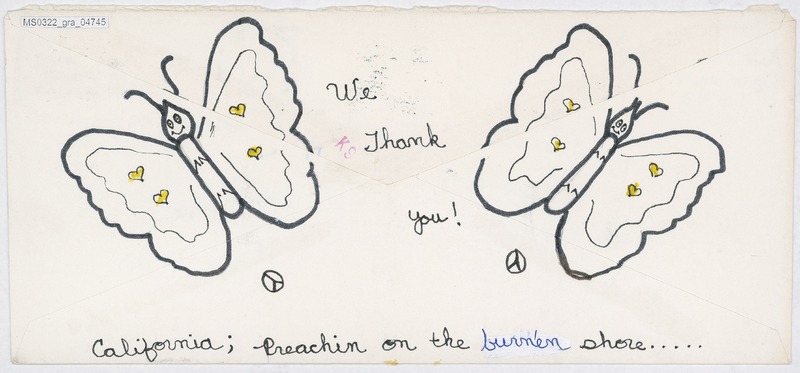 MS0322_gra_04745
We
Thank
KS
you!
California; Preachin on the burn'en shore.....